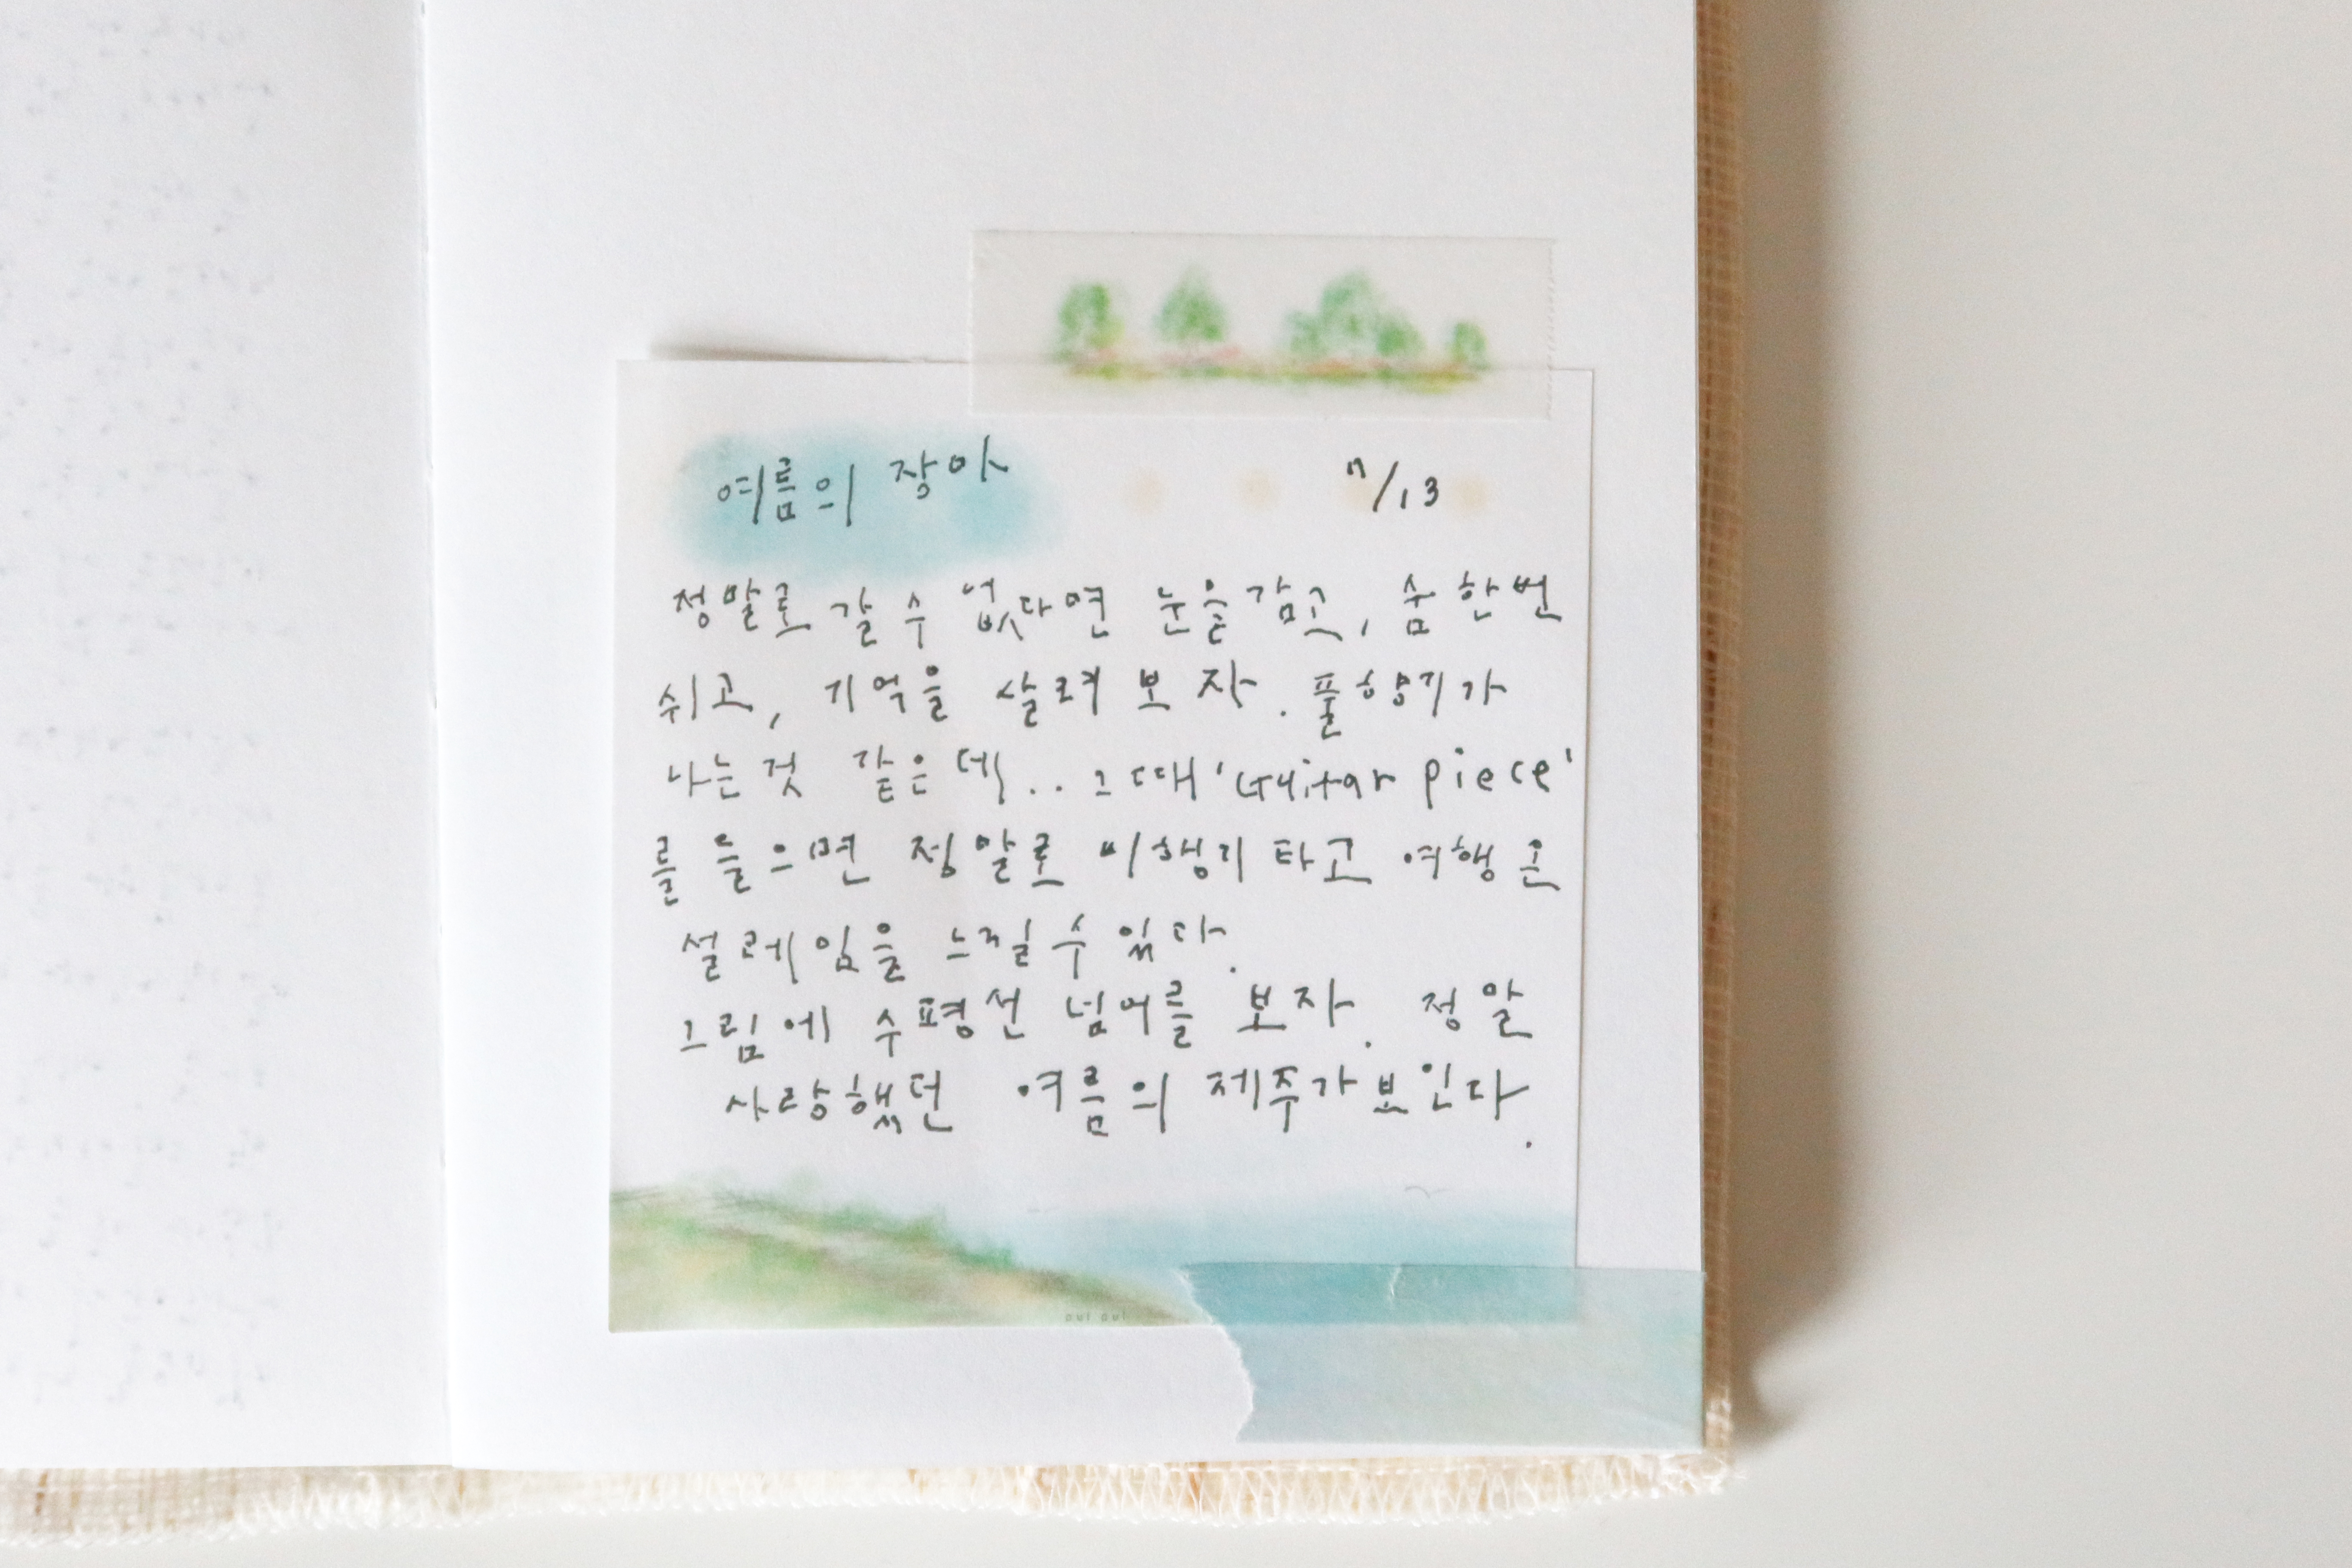 여름의 장마 7/13
정말로 갈 수 없다면 눈을감고, 숨 한번
쉬고, 기억을 살려 보자. 풀향기가
나는것 같은데.. 그때 'Guitar piece'
를 들으면 정말로 비행기 타고 여행 온
설레임을 느낄 수 있다.
그림에 수평선 넘어를 보자. 정말
사랑했던 여름의 제주가 보인다.
oui oui